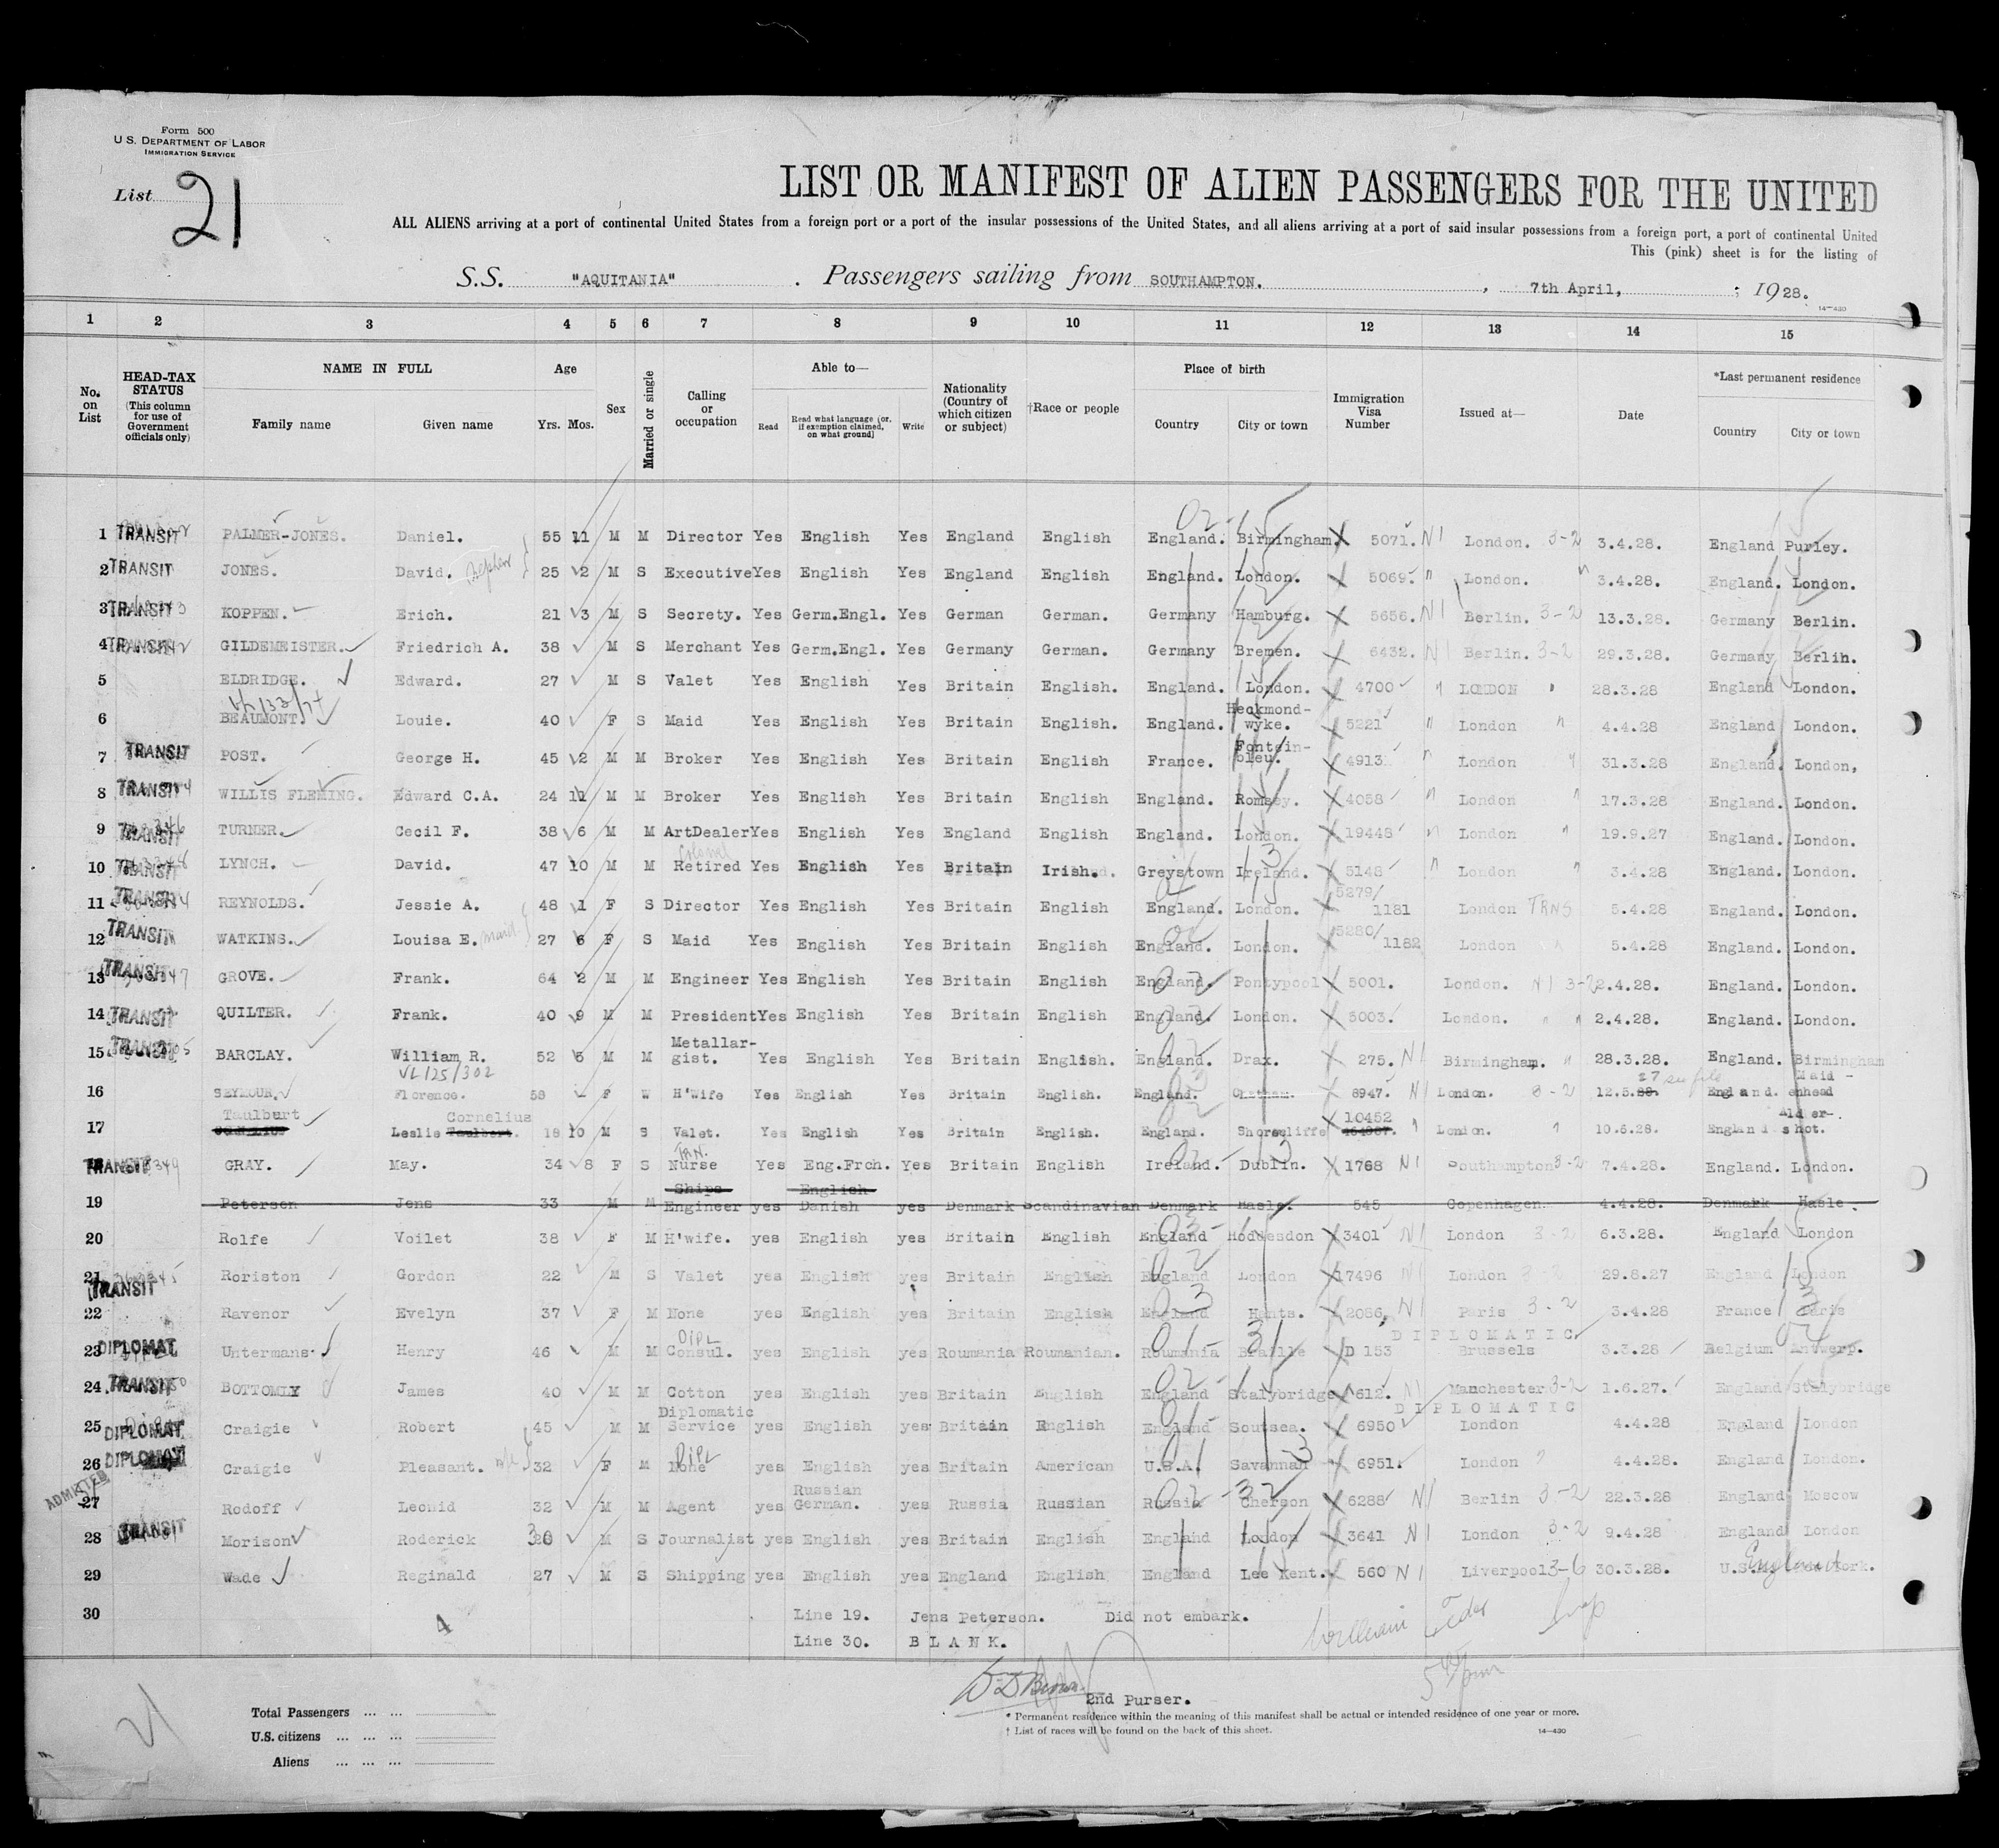 Form 500
U.S. DEPARTMENT OF LABOR
IMMIGRATION SERVICE
List 21
LIST OR MANIFEST OF ALIEN PASSENGERS FOR THE UNITED
ALL ALIENS arriving at a port of continental United States from a foreign port or a port of the insular possessions of the United States, and all aliens arriving at a port of said insular possessions from a foreign port, a port of continental United
This (pink) sheet is for the listing of
S.S. "AQUITANIA" . Passengers sailing from SOUTHAMPTON. , 7th April, ; 1928.
14—430
1 2 3 4 5 6 7 8 9 10 11 12 13 14 15
No. on List
HEAD-TAX STATUS (This column for use of Government officials only)
NAME IN FULL
Family name Given name
Age
Yrs. Mos.
Sex
Married or single
Calling or occupation
Able to—
Read Read what language (or, if exemption claimed, on what ground) Write
Nationality (Country of which citizen or subject)
†Race or people
Place of birth
Country City or town
Immigration Visa Number
Issued at—
Date
*Last permanent residence
Country City or town
1 TRANSIT PALMER-JONES. Daniel. 55 11 M M Director Yes English Yes England English England. Birmingham. 5071. N1 London. 3-2 3.4.28. England Purley.
2 TRANSIT JONES. David. 25 2 M S Executive Yes English Yes England English England. London. 5069. " London. " 3.4.28. England. London.
3 TRANSIT KOPPEN. Erich. 21 3 M S Secrety. Yes Germ.Engl. Yes German German. Germany Hamburg. 5656. N1 Berlin. 3-2 13.3.28. Germany Berlin.
4 TRANSIT GILDEMEISTER. Friedrich A. 38 M S Merchant Yes Germ.Engl. Yes Germany German. Germany Bremen. 6432. N1 Berlin. 3-2 29.3.28. Germany Berlin.
5 ELDRIDGE. Edward. 27 M S Valet Yes English Yes Britain English. England. London. 4700 " LONDON " 28.3.28 England London.
6 BEAUMONT. Louie. 40 F S Maid Yes English Yes Britain English. England. Heckmond-wyke. 5221 " London " 4.4.28 England London.
7 TRANSIT POST. George H. 45 2 M M Broker Yes English Yes Britain English France. Fontein-bleu. 4913 " London " 31.3.28 England. London,
8 TRANSIT WILLIS FLEMING. Edward C.A. 24 11 M M Broker Yes English Yes Britain English England. Romsey. 4058 " London " 17.3.28 England. London.
9 TRANSIT TURNER. Cecil F. 38 6 M M ArtDealer Yes English Yes England English England. London. 19448 " London " 19.9.27 England. London.
10 TRANSIT LYNCH. David. 47 10 M M Retired Yes English Yes Britain Irish. Greystown Ireland. 5148 " London " 3.4.28 England. London.
11 TRANSIT REYNOLDS. Jessie A. 48 1 F S Director Yes English Yes Britain English England. London. 5279/ 1181 London TRNS 5.4.28 England. London.
12 TRANSIT WATKINS. Louisa E. maid 27 6 F S Maid Yes English Yes Britain English England. London. 5280/ 1182 London 5.4.28 England. London.
13 TRANSIT GROVE. Frank. 64 2 M M Engineer Yes English Yes Britain English England. Pontypool 5001. London. N1 3-2 2.4.28. England. London.
14 TRANSIT QUILTER. Frank. 40 9 M M President Yes English Yes Britain English England. London. 5003. London. " " 2.4.28. England. London.
15 TRANSIT BARCLAY. William R. 52 5 M M Metallar-gist. Yes English Yes Britain English. England. Drax. 275. N1 Birmingham. " 28.3.28. England. Birmingham
VL125/302
16 SEYMOUR. Florence. 58 F W H'wife Yes English Yes Britain English. England. Chatham. 8947. N1 London. 3-2 12.5. 27 England. Maid-enhead
17 Taulburt Leslie Cornelius 18 10 M S Valet. Yes English Yes Britain English. England. Shorncliffe 10452 " London. " 10.6.28. England Alder-shot.
18 TRANSIT GRAY. May. 34 8 F S Nurse Yes Eng.Frch. Yes Britain English Ireland. Dublin. 1768 N1 Southampton 3-2 7.4.28. England. London.
19 Petersen Jens 33 M M Ships Engineer yes English Danish yes Denmark Scandinavian Denmark Hasle. 545 Copenhagen 4.4.28. Denmark Hasle.
20 Rolfe Voilet 38 F M H'wife. yes English yes Britain English England Hoddesdon 3401 N1 London 3-2 6.3.28. England London
21 TRANSIT Roriston Gordon 22 M S Valet yes English yes Britain English England London 17496 N1 London 3-2 29.8.27 England London
22 Ravenor Evelyn 37 F M None yes English yes Britain English England Hants. 2086, N1 Paris 3-2 3.4.28 France Paris
23 DIPLOMAT Untermans. Henry 46 M M DIPL Consul. yes English yes Roumania Roumanian. Roumania Braille D 153 DIPLOMATIC Brussels 3.3.28 Belgium Antwerp.
24 TRANSIT BOTTOMLY James 40 M M Cotton yes English yes Britain English England Stalybridge 612. N1 Manchester 3-2 1.6.27. England Stalybridge
25 DIPLOMAT Craigie Robert 45 M M Diplomatic Service yes English yes Britain English England Soutsea. 6950 DIPLOMATIC London 4.4.28 England London
26 DIPLOMAT Craigie Pleasant. 32 F M DIPL None yes English yes Britain American U.S.A. Savannah 6951. London " 4.4.28. England London.
ADMITTED
27 Rodoff Leonid 32 M M Agent yes Russian German. yes Russia Russian Russia Cherson 6288 N1 Berlin 3-2 22.3.28 England Moscow
28 TRANSIT Morison Roderick 30 M S Journalist yes English yes Britain English England London 3641 N1 London 3-2 9.4.28 England London
29 Wade Reginald 27 M S Shipping yes English yes England English England Lee Kent. 560 N1 Liverpool 3-6 30.3.28. England
30 Line 19. Jens Peterson. Did not embark.
Line 30. BLANK.
4
2nd Purser.
Total Passengers ... ...
U.S. citizens ... ... ...
Aliens ... ... ...
* Permanent residence within the meaning of this manifest shall be actual or intended residence of one year or more.
† List of races will be found on the back of this sheet.
14—430